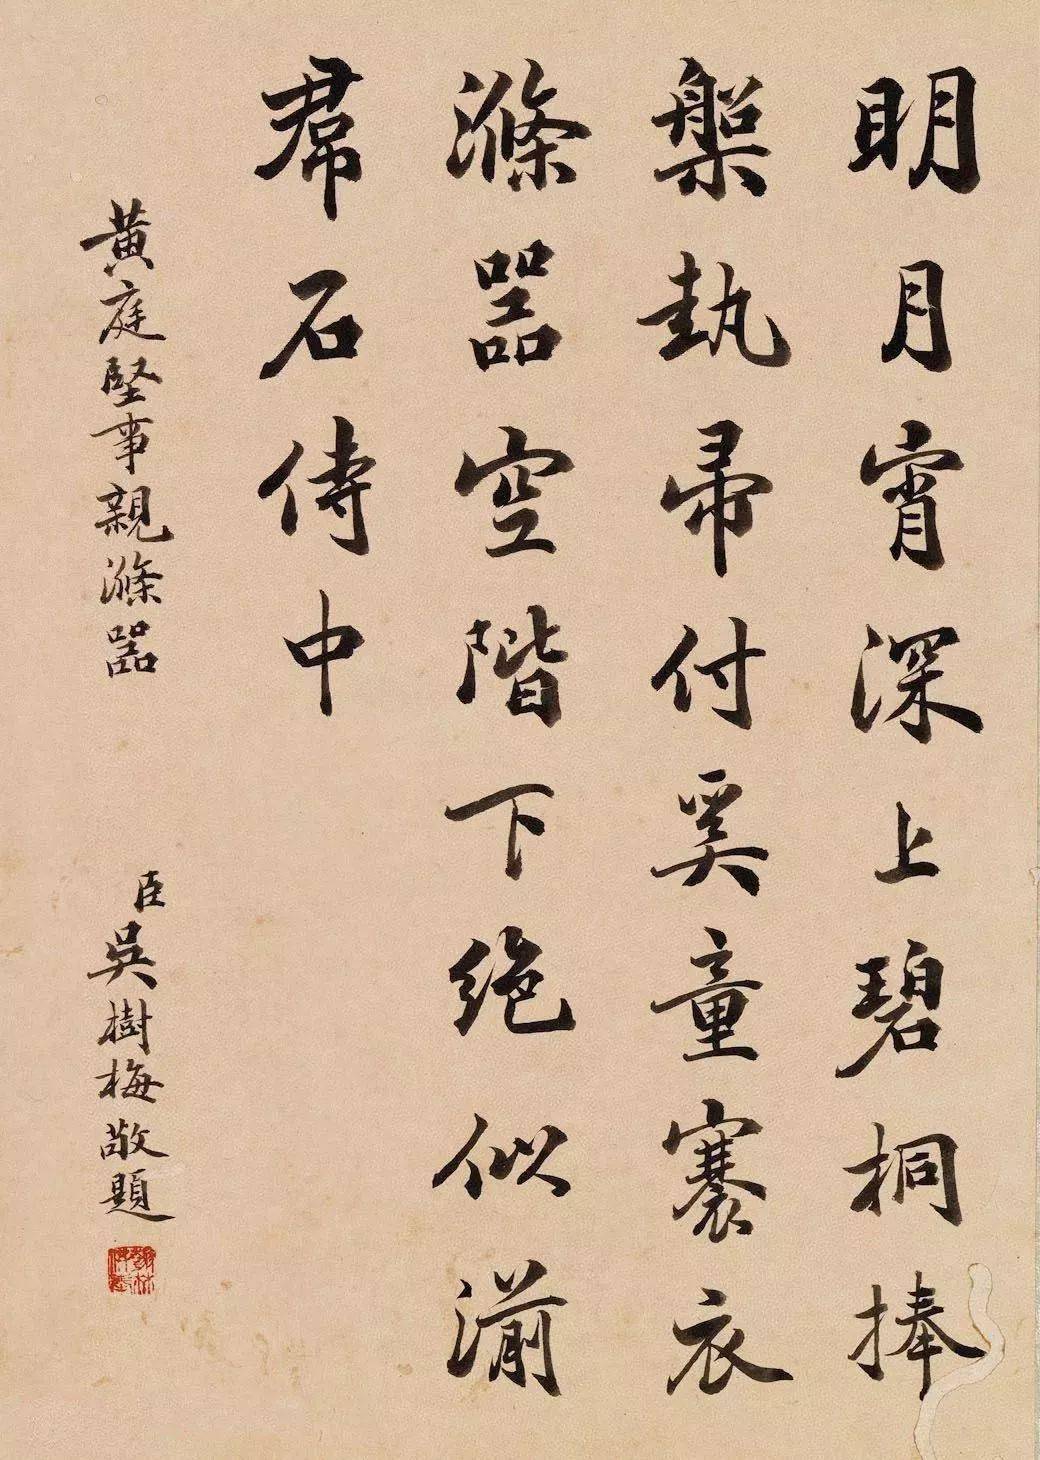 明月宵深上碧桐捧
槃執帚付奚童褰衣
滌器空階下絕似湔
帬石侍中
黃庭堅事親滌器
臣吳樹梅敬題
翰林供奉